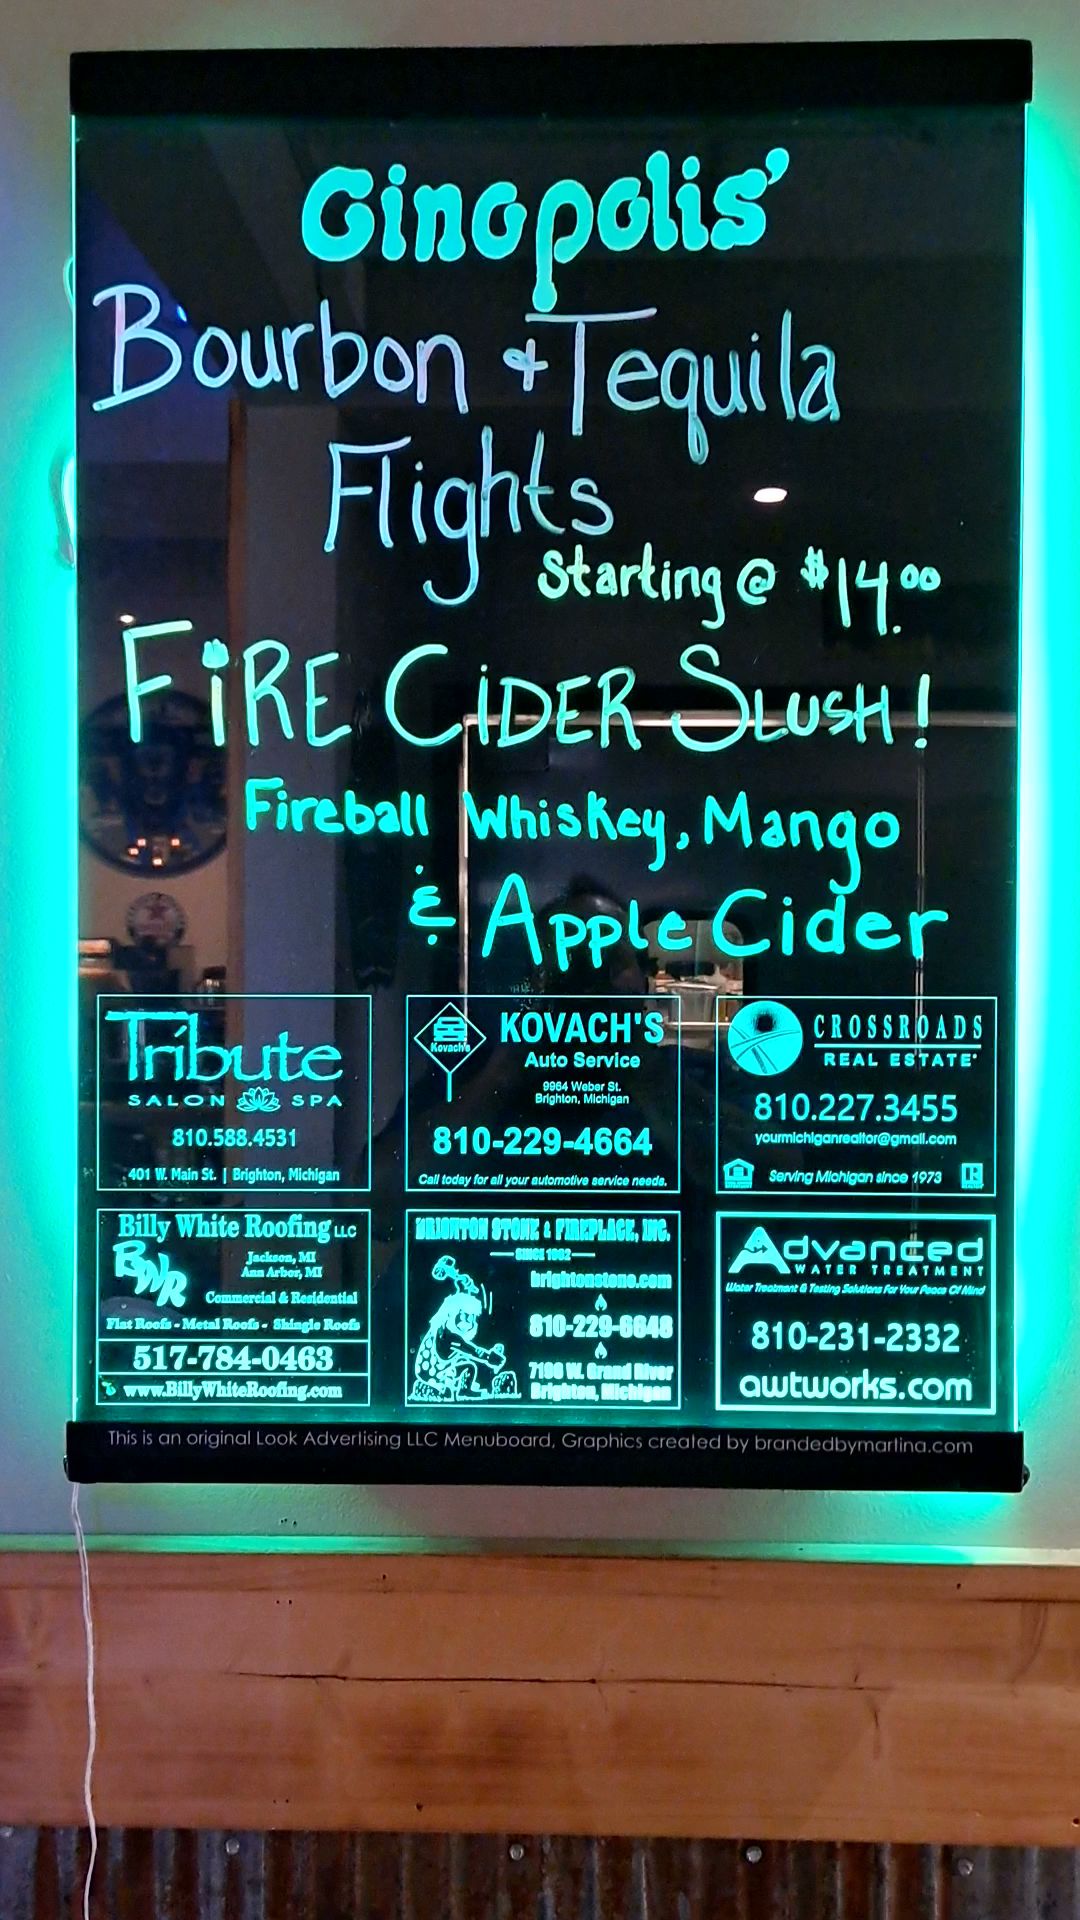 Ginopolis'
Bourbon + Tequila
Flights
Starting @ $14.00
FiRE CiDER SLUSH!
Fireball Whiskey, Mango
& Apple Cider
Tribute
SALON SPA
810.588.4531
401 W. Main St. | Brighton, Michigan
Kovach's
KOVACH'S
Auto Service
9964 Weber St.
Brighton, Michigan
810-229-4664
Call today for all your automotive service needs.
CROSSROADS
REAL ESTATE
810.227.3455
yourmichiganrealtor@gmail.com
Serving Michigan since 1973
Billy White Roofing LLC
BWR
Jackson, MI
Ann Arbor, MI
Commercial & Residential
Flat Roofs - Metal Roofs - Shingle Roofs
517-784-0463
www.BillyWhiteRoofing.com
BRIGHTON STONE & FIREPLACE, INC.
brightonstone.com
810-229-6648
7196 W. Grand River
Brighton, Michigan
Advanced
WATER TREATMENT
Water Treatment & Testing Solutions For Your Peace Of Mind
810-231-2332
awtworks.com
This is an original Look Advertising LLC Menuboard, Graphics created by brandedbymartina.com